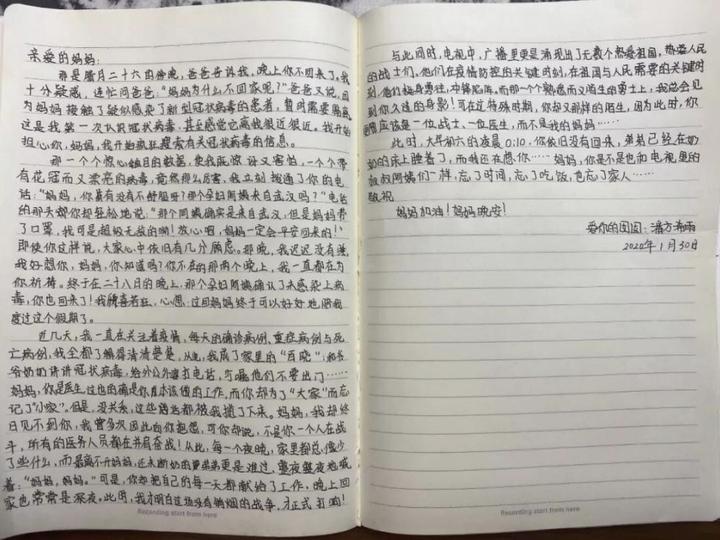 亲爱的妈妈:
那是腊月二十六的傍晚,爸爸告诉我,晚上你不回来了。我
十分疑惑,连忙问爸爸:“妈妈为什么不回家呢?”爸爸又说,因
为妈妈接触了疑似感染了新型冠状病毒的患者,暂时需要隔离
这是我第一次认识冠状病毒,甚至感觉它离我很近很近。我开始
担心你,妈妈,我开始疯狂搜索有关冠状病毒的信息。
那一个个惊心触目的数据,使我既惊讶又害怕,一个个带
有花冠而又漂亮的病毒,竟然那么厉害,我立刻拨通了你的电
话:“妈妈,你真有没有不舒服呀?那个孕妇阿姨来自武汉吗?”电话
的那头却你却轻松地说:“那个阿姨确实是来自武汉,但是妈妈带
了口罩,我可是超级无敌的啊!放心吧,妈妈一定会平安回来的!”
即使你这样说,大家心中依旧有几分顾虑。那晚,我迟迟没有睡
我好想你,妈妈,你知道吗?你不在的那两个晚上,我一直都在为
你祈祷。终于在二十八日的晚上,那个孕妇阿姨确认了未感染上病
毒,你也回来了!我欣喜若狂,心想:这回妈妈终于可以好好地陪我
度过这个假期了。
近几天,我一直在关注着疫情,每天的确诊病例、重症病例与死
亡病例,我全都了解得清清楚楚,从此,我成了家里的“百晓”:和爷
爷奶奶讲讲冠状病毒,给外公外婆打电话,叮嘱他们不要出门……
妈妈,你是医生,这也的确是你身本该做的工作,而你却为了“大家”而忘
记了“小家”。但是,没关系,这些话语都被我揽了下来。妈妈,我却终
日见不到你,我曾多次因此向你抱怨,可你却说,不是你一个人在战
斗,所有的医务人员都在并肩奋战!从此,每一个夜晚,家里都总像少
了些什么,而最离不开妈妈,还未断奶的弟弟更是难过,整夜整夜地喊
着:“妈妈,妈妈。”可是,你却把自己的每一天都献给了工作,晚上回
家也常常是深夜。此时,我才明白这场没有硝烟的战争,才正式打响!
与此同时,电视中,广播里更是涌现出了无数个热爱祖国,热爱人民
的战士们,他们在疫情防控的关键时刻,在祖国与人民需要的关键时
刻,他们挺身勇往,冲锋陷阵。而那一个个熟悉而又陌生的勇士上,我总会见
到你久违的身影!可在这特殊时期,你却又那样的陌生,因为此时,你
更应该是一位战士、一位医生,而不是我的妈妈……
此时,大年初六的凌晨0:10,你依旧没有回来,弟弟已经在奶
奶的床上睡着了,而我还在想你……妈妈,你是不是也和电视里的
叔叔阿姨们一样,忘了时间,忘了吃饭,也忘了家人……
敬祝
妈妈加油!妈妈晚安!
爱你的囡囡:潘方希雨
2020年1月30日
Recording start from here
Recording start from here